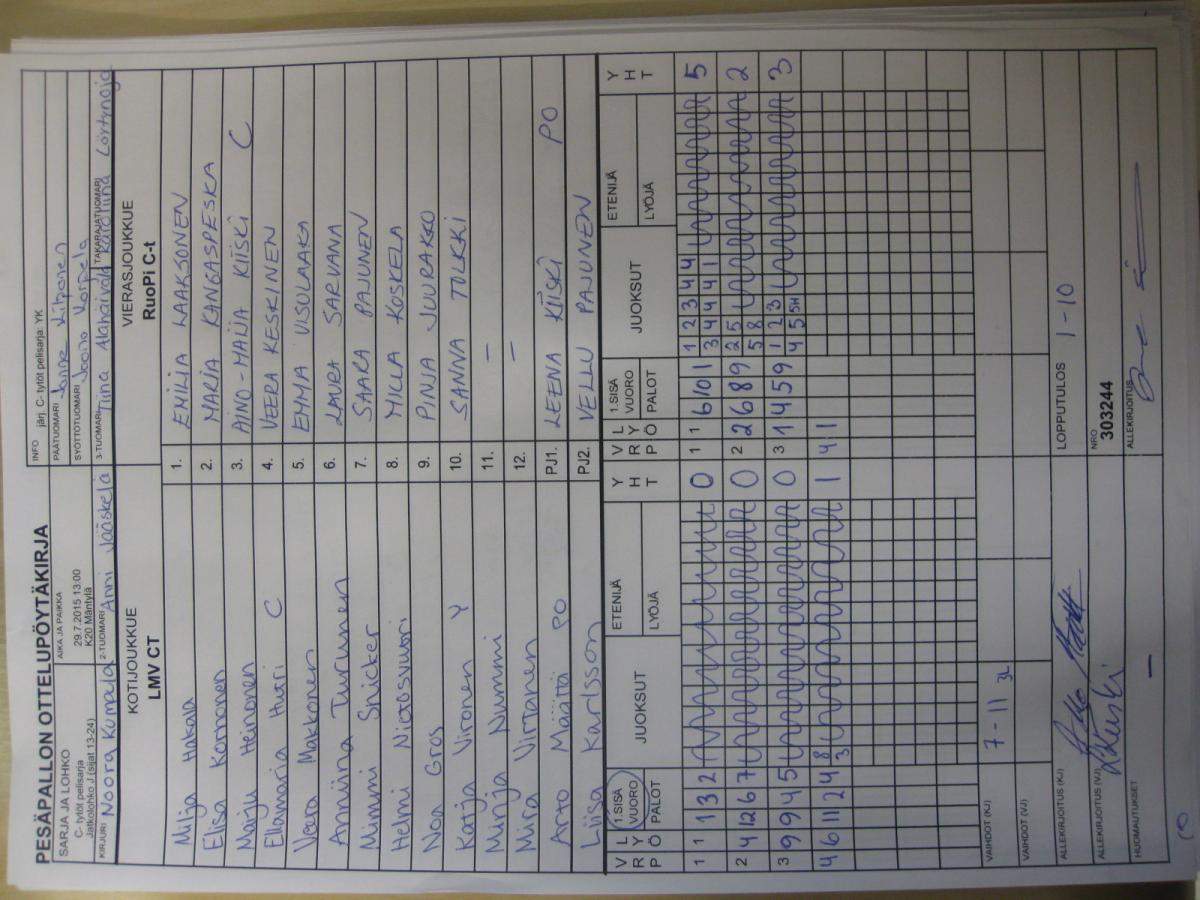 PESÄPALLON OTTELUPÖYTÄKIRJA
SARJA JA LOHKO
C- tytöt pelisarja
Jatkolohko J (sijat 13-24)
AIKA JA PAIKKA
29.7.2015 13:00
K20 Mäntylä
INFO järj. C- tytöt pelisarja: YK
PÄÄTUOMARI Janne Litmanen
SYÖTTÖTUOMARI Joona Korpela
KIRJURI Noora Kumala
2-TUOMARI Anni Jääskelä
3-TUOMARI Tiina Alahäivälä
TAKARAJATUOMARI Karoliina
KOTIJOUKKUE
LMV CT
VIERASJOUKKUE
RuoPi C-t
Milja Hakala 1. EMILIA LAAKSONEN
Elisa Korhonen 2. MARIA KANGASPESKA
Marju Heinonen 3. AINO-MAIJA KIISKI C
Ellamaria Hutri C 4. VEERA KESKINEN
Veera Makkonen 5. EMMA VISULAAKA
Anniina Turunen 6. LAURA SARVANA
Mimmi Snicker 7. SAARA PAJUNEN
Helmi Nietosvuori 8. MILLA KOSKELA
Noa Gros 9. PINJA JUURAKKO
Katja Vironen Y 10. SANNA TOLKKI
Minja Nummi 11. -
Mira Virtanen 12. -
Arto Määttä PO PJ1. LEENA KIISKI PO
Liisa Karlsson PJ2. VELLU PAJUNEN
V R P L Y Ö 1.SISÄ VUORO PALOT JUOKSUT ETENIJÄ LYÖJÄ Y H T
V R P L Y Ö 1.SISÄ VUORO PALOT JUOKSUT ETENIJÄ LYÖJÄ Y H T
1 1 1 3 2 0
1 1 6 10 1 1 2 3 4 4 5
3 4 4 4 1
2 4 12 6 7 0
2 2 6 8 9 2 5 2
5 8
3 9 9 4 5 0
3 1 4 5 9 1 2 3 3
4 5 5H
4 6 11 2 4 8 1
3
4 1
VAIHDOT (KJ) 7-11 3L
VAIHDOT (VJ)
ALLEKIRJOITUS (KJ)
LOPPUTULOS 1-10
ALLEKIRJOITUS (VJ) L Kiiski
NRO
303244
HUOMAUTUKSET -
ALLEKIRJOITUS